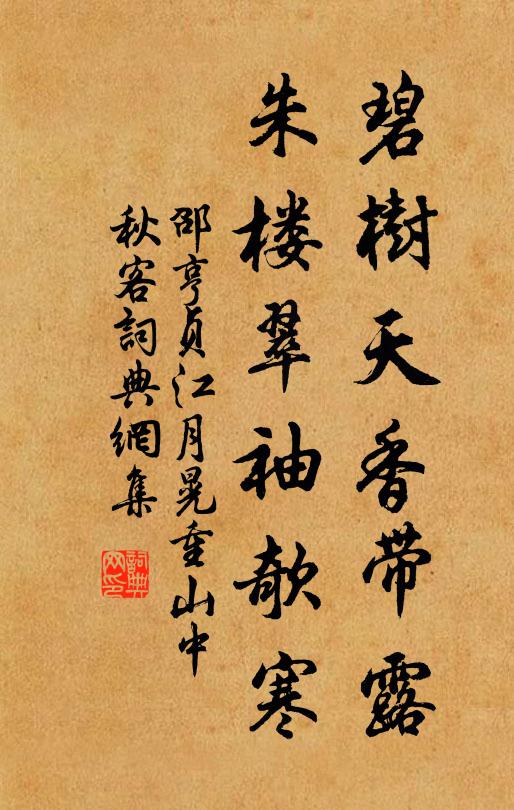 碧樹天香带露
朱楼翠袖欹寒
邵亨貞江月晃重山中
秋客詞典網集
詞典网印